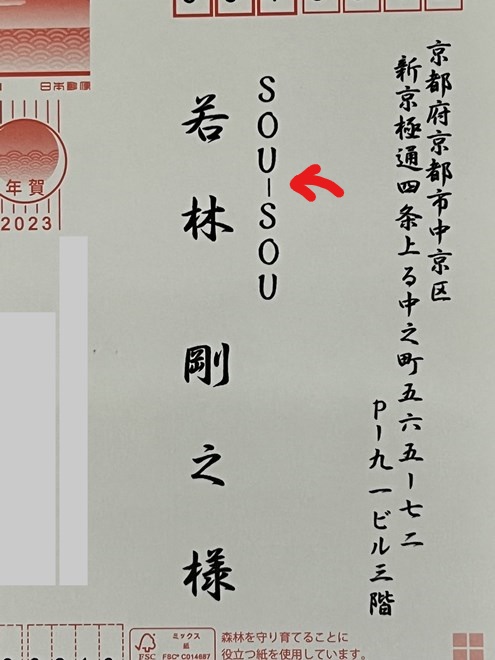 京都府京都市中京区
新京極通四条上る中之町五六五ー七二
Pー九一ビル三階
SOU-SOU
若林 剛之 様
日本郵便
年賀
2023
ミックス
紙
FSC
FSC® C014687
森林を守り育てることに
役立つ紙を使用しています。